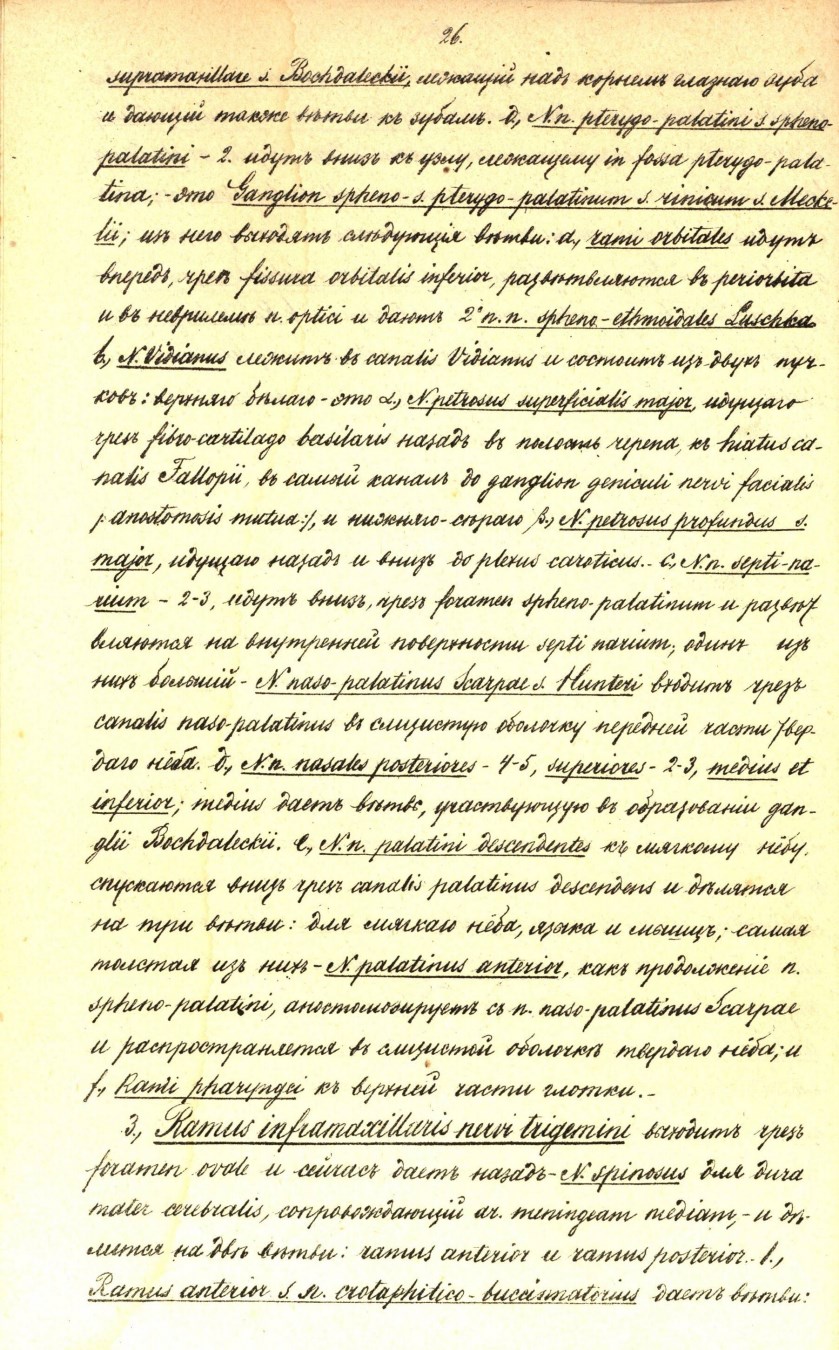 26.
supramaxillare s. Bochdaleckii, лежащій надъ корнемъ глазнаго зуба
и дающій также вѣтви къ зубамъ. d, N.n. pterygo-palatini s spheno-
palatini – 2. идутъ внизъ къ узлу, лежащему in fossa pterygo-pala-
tina; - это Ganglion spheno- s. pterygo-palatinum s. rinicum s. Mecke-
lii; изъ него выходятъ слѣдующія вѣтви: a, rami orbitales идутъ
впередъ, чрезъ fissura orbitalis inferior, развѣтвляются въ periorbita
и въ неврилемѣ n. optici и даютъ 2 n.n. spheno-ethmoidales Luschka
b, N. Vidianus лежитъ въ canalis Vidianus и состоитъ изъ двухъ пуч-
ковъ: верхняго бѣлаго - это α, N. petrosus superficialis major, идущаго
чрезъ fibro-cartilago basilaris назадъ въ полость черепа, къ hiatus ca-
nalis Fallopii, въ самый каналъ до ganglion geniculi nervi facialis
/: anostomosis mutua:/, и нижняго-сѣраго β, N. petrosus profundus s.
major, идущаго назадъ и внизъ до plexus caroticus. - c, N.n. septi-na-
rium – 2-3, идутъ внизъ, чрезъ foramen spheno-palatinum и развѣт
вляются на внутренней поверхности septi narium; одинъ изъ
нихъ большій - N. naso-palatinus Scarpae s. Hunteri входитъ чрезъ
canalis naso-palatinus въ слизистую оболочку передней части твер-
даго нёба. d, N.n. nasales posteriores - 4-5, superiores - 2-3, medius et
inferior; medius даетъ вѣтвь, участвующую въ образованіи gan-
glii Bochdaleckii. e, N.n. palatini descendentes къ мягкому нёбу,
спускаются внизъ чрезъ canalis palatinus descendens и дѣлятся
на три вѣтви: для мягкаго нёба, язычка и мышцъ; самая
толстая изъ нихъ - N. palatinus anterior, какъ продолженіе n.
spheno-palatini, аностомозируетъ съ n. naso-palatinus Scarpae
и распространяется въ слизистой оболочкѣ твердаго нёба; и
f, Rami pharyngei къ верхней части глотки. -
3, Ramus inframaxillaris nervi trigemini выходитъ чрезъ
foramen ovale и сейчасъ даетъ назадъ - N. spinosus для dura
mater cerebralis, сопровождающій ar. meningeam mediam, - и дѣ-
лится на двѣ вѣтви: ramus anterior и ramus posterior. - 1,
Ramus anterior s. n. crotaphitico-buccinatorius даетъ вѣтви: